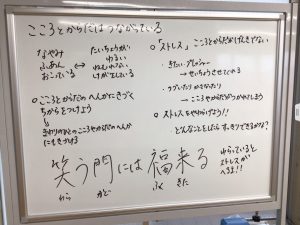 こころとからだはつながっている
なやみ
ふあん
おこっている
↔
たいちょうが
わるい
ねむれない
けがをしている
○こころとからだのへんかにきづく
ちからをつけよう
↓
まわりのひとのこころやからだのへんか
にもきづける
○「ストレス」こころとからだがげんきでない
・きたい・プレッシャー
→せいちょうさせてくれる
・つづいたり かさなたり
→こころやからだがつかれてしまう
○ストレスをやわらげよう!!
・どんなことをしたらすっきりできるかな?
笑う門には福来る
わら
かど
ふく
きた
わらっていると
ストレスが
へるよ!!